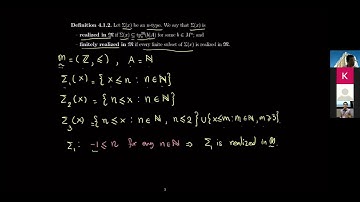 Definition 4.1.2. Let Σ(x) be an n-type. We say that Σ(x) is
realized in 𝔐 if Σ(x) ⊆ tp^𝔐(b/A) for some b ∈ Mⁿ; and
finitely realized in 𝔐 if every finite subset of Σ(x) is realized in 𝔐.
𝔐 = (ℤ, ≤) , A = ℕ
Σ₁(x) = {x ≤ n : n ∈ ℕ}
Σ₂(x) = {n ≤ x : n ∈ ℕ}
Σ₃(x) = {n ≤ x : n ∈ ℕ, n ≤ 2} ∪ {x ≤ m : m ∈ ℕ, m ≥ 3}
Σ₁ : -1 ≤ n for any n ∈ ℕ ⇒ Σ₁ is realized in 𝔐
K